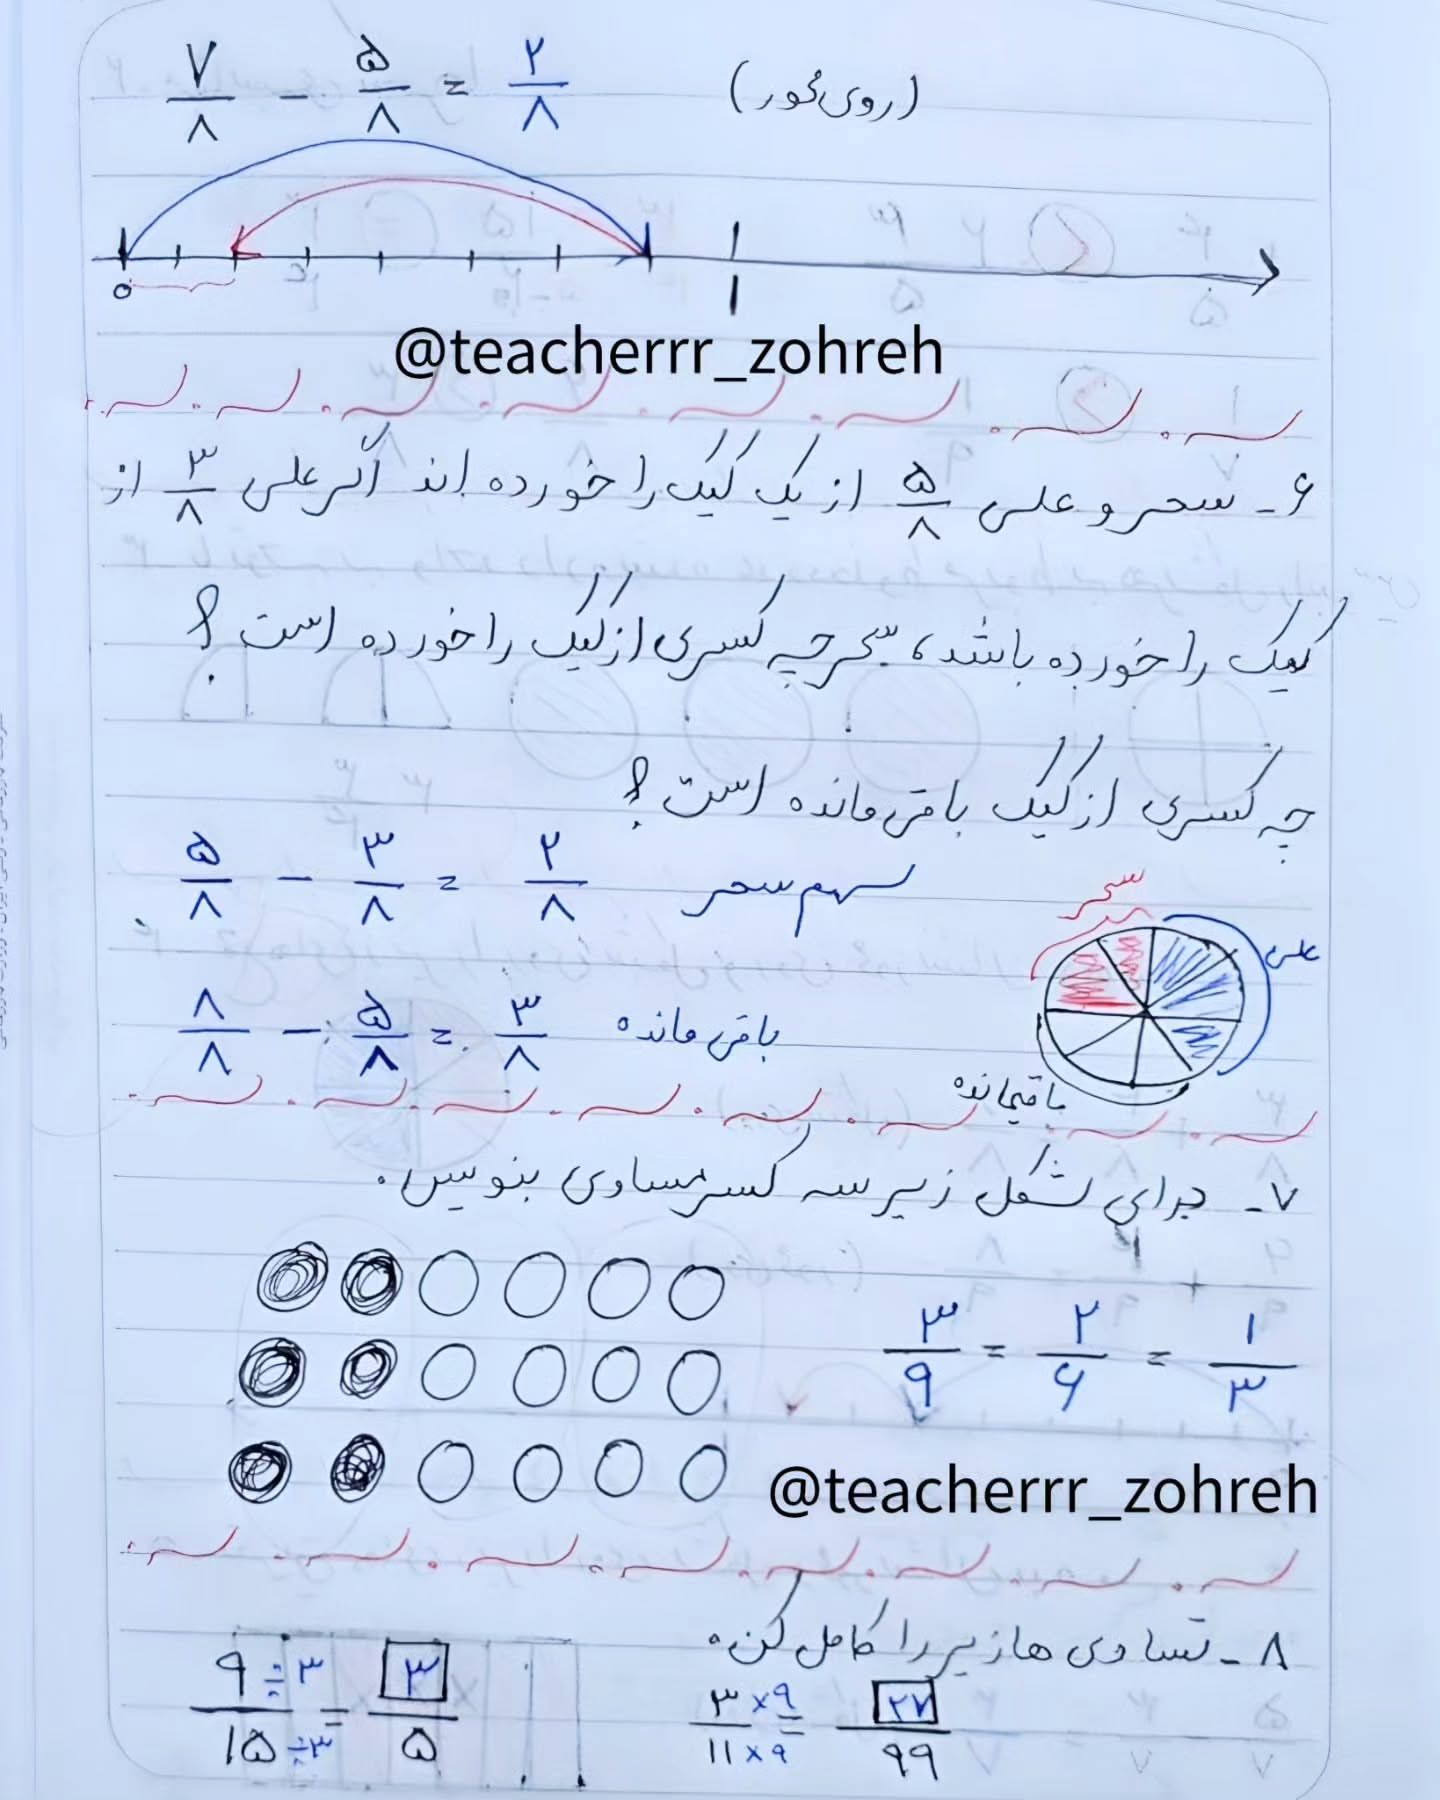 ۷/۸ - ۵/۸ = ۲/۸ (روی محور)
۰ ۱
@teacherrr_zohreh
۶- سحر و علی ۵/۸ از یک کیک را خورده اند اگر علی ۳/۸ از
کیک را خورده باشد، سحر چه کسری از کیک را خورده است؟
چه کسری از کیک باقی مانده است؟
۵/۸ - ۳/۸ = ۲/۸ سهم سحر
سحر
علی
۸/۸ - ۵/۸ = ۳/۸ باقی مانده
باقیمانده
۷- برای شکل زیر سه کسر مساوی بنویس.
۳/۹ = ۲/۶ = ۱/۳
@teacherrr_zohreh
۸- تساوی ها زیر را کامل کن.
۳×۹/۱۱×۹ = ۲۷/۹۹
۹÷۳/۱۵÷۳ = ۳/۵